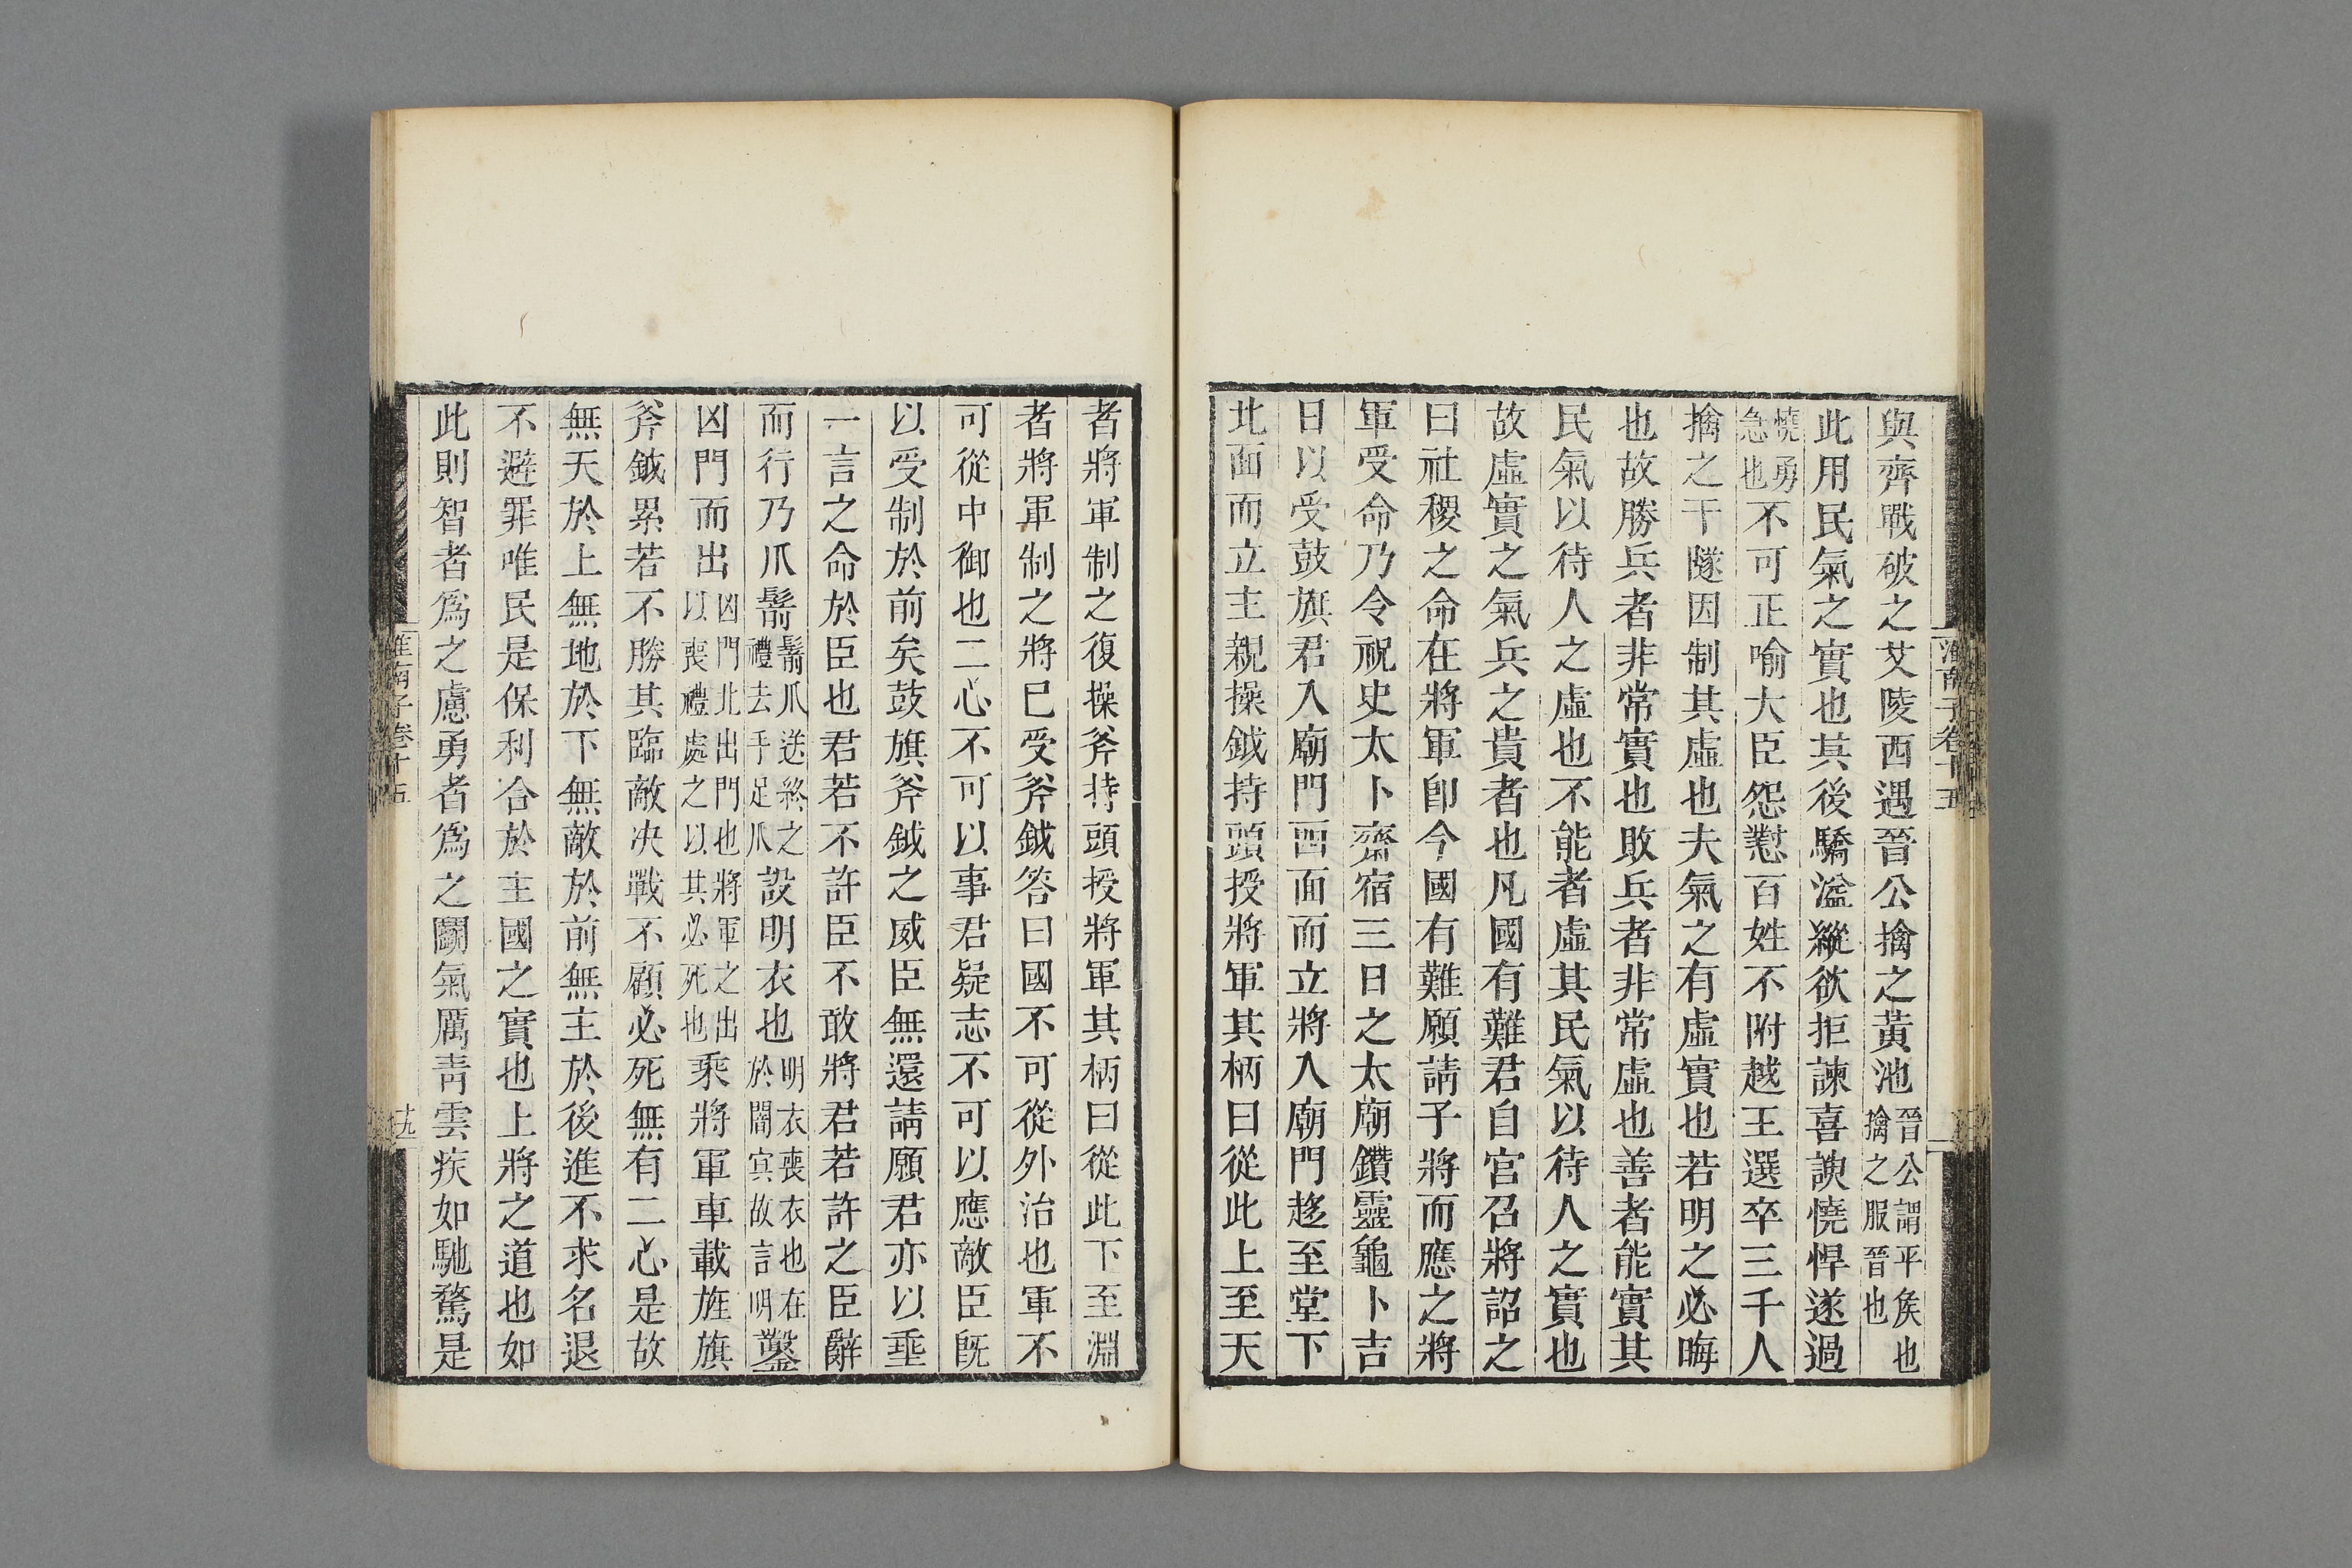 淮南子卷十五
與齊戰破之艾陵西遇晉公擒之黃池晉公謂平矦也擒之服晉也
此用民氣之實也其後驕溢縱欲拒諫喜諛憢悍遂過
憢勇急也不可正喻大臣怨懟百姓不附越王選卒三千人
擒之干隧因制其虛也夫氣之有虛實也若明之必晦
也故勝兵者非常實也敗兵者非常虛也善者能實其
民氣以待人之虛也不能者虛其民氣以待人之實也
故虛實之氣兵之貴者也凡國有難君自宮召將詔之
曰社稷之命在將軍卽今國有難願請子將而應之將
軍受命乃令祝史太卜齋宿三日之太廟鑽靈龜卜吉
日以受鼓旗君入廟門西面而立將入廟門趍至堂下
北面而立主親操鉞持頭授將軍其柄曰從此上至天
者將軍制之復操斧持頭授將軍其柄曰從此下至淵
者將軍制之將已受斧鉞答曰國不可從外治也軍不
可從中御也二心不可以事君疑志不可以應敵臣旣
以受制於前矣鼓旗斧鉞之威臣無還請願君亦以埀
一言之命於臣也君若不許臣不敢將君若許之臣辭
而行乃爪鬋鬋爪送終之禮去手足爪設明衣也明衣喪衣也在於闇冥故言明鑿
凶門而出凶門北出門也將軍之出以喪禮處之以其必死也乘將軍車載旌旗
斧鉞累若不勝其臨敵决戰不顧必死無有二心是故
無天於上無地於下無敵於前無主於後進不求名退
不避罪唯民是保利合於主國之實也上將之道也如
此則智者爲之慮勇者爲之鬭氣厲青雲疾如馳騖是
淮南子卷十五
十九